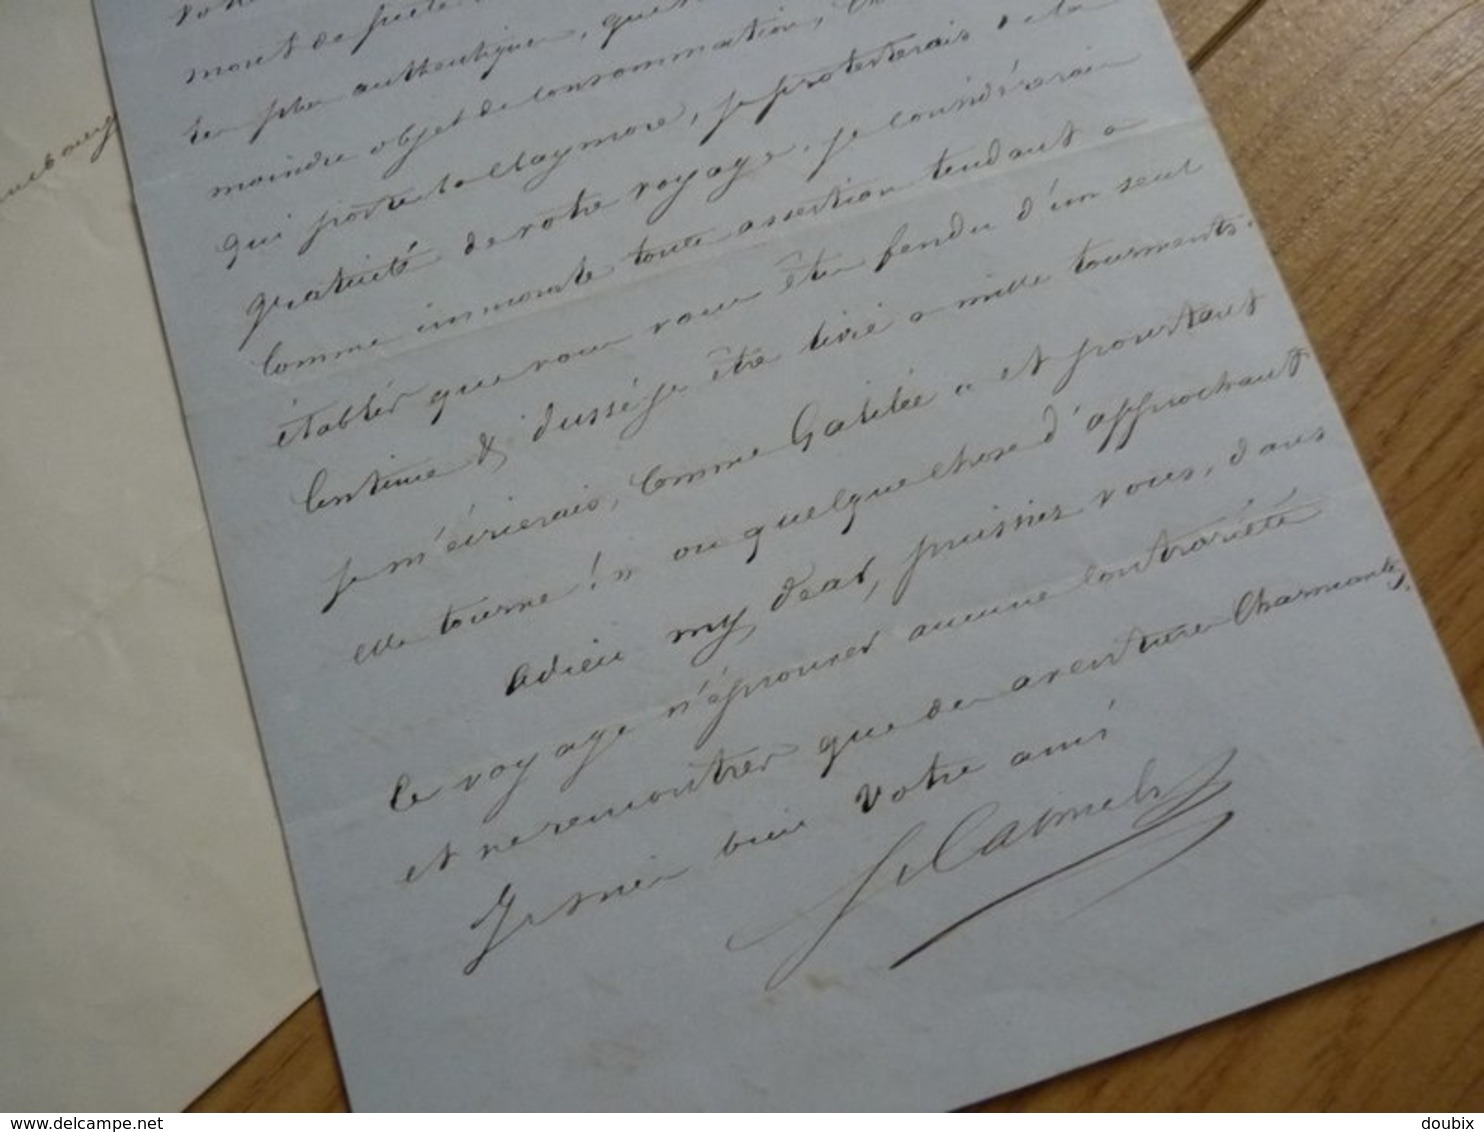 mont de piété
les plus authentiques, que
moindre objet de consommation,
qui porte la claymore, je protesterais de la
gratuité de votre voyage. je considérerais
comme immorale toute assertion tendant a
établir que vous vous êtes fendu d'un seul
Centime & dussé-je être livré a mille tourments.
je m'écrierais, comme Galilée « et pourtant
elle tourne! » ou quelque chose d'approchant
adieu my dear, puissiez vous, dans
ce voyage n'éprouver aucune contrariété
et ne rencontrer que des aventures Charmantes,
Je suis bien votre ami
www.delcampe.net
doubix